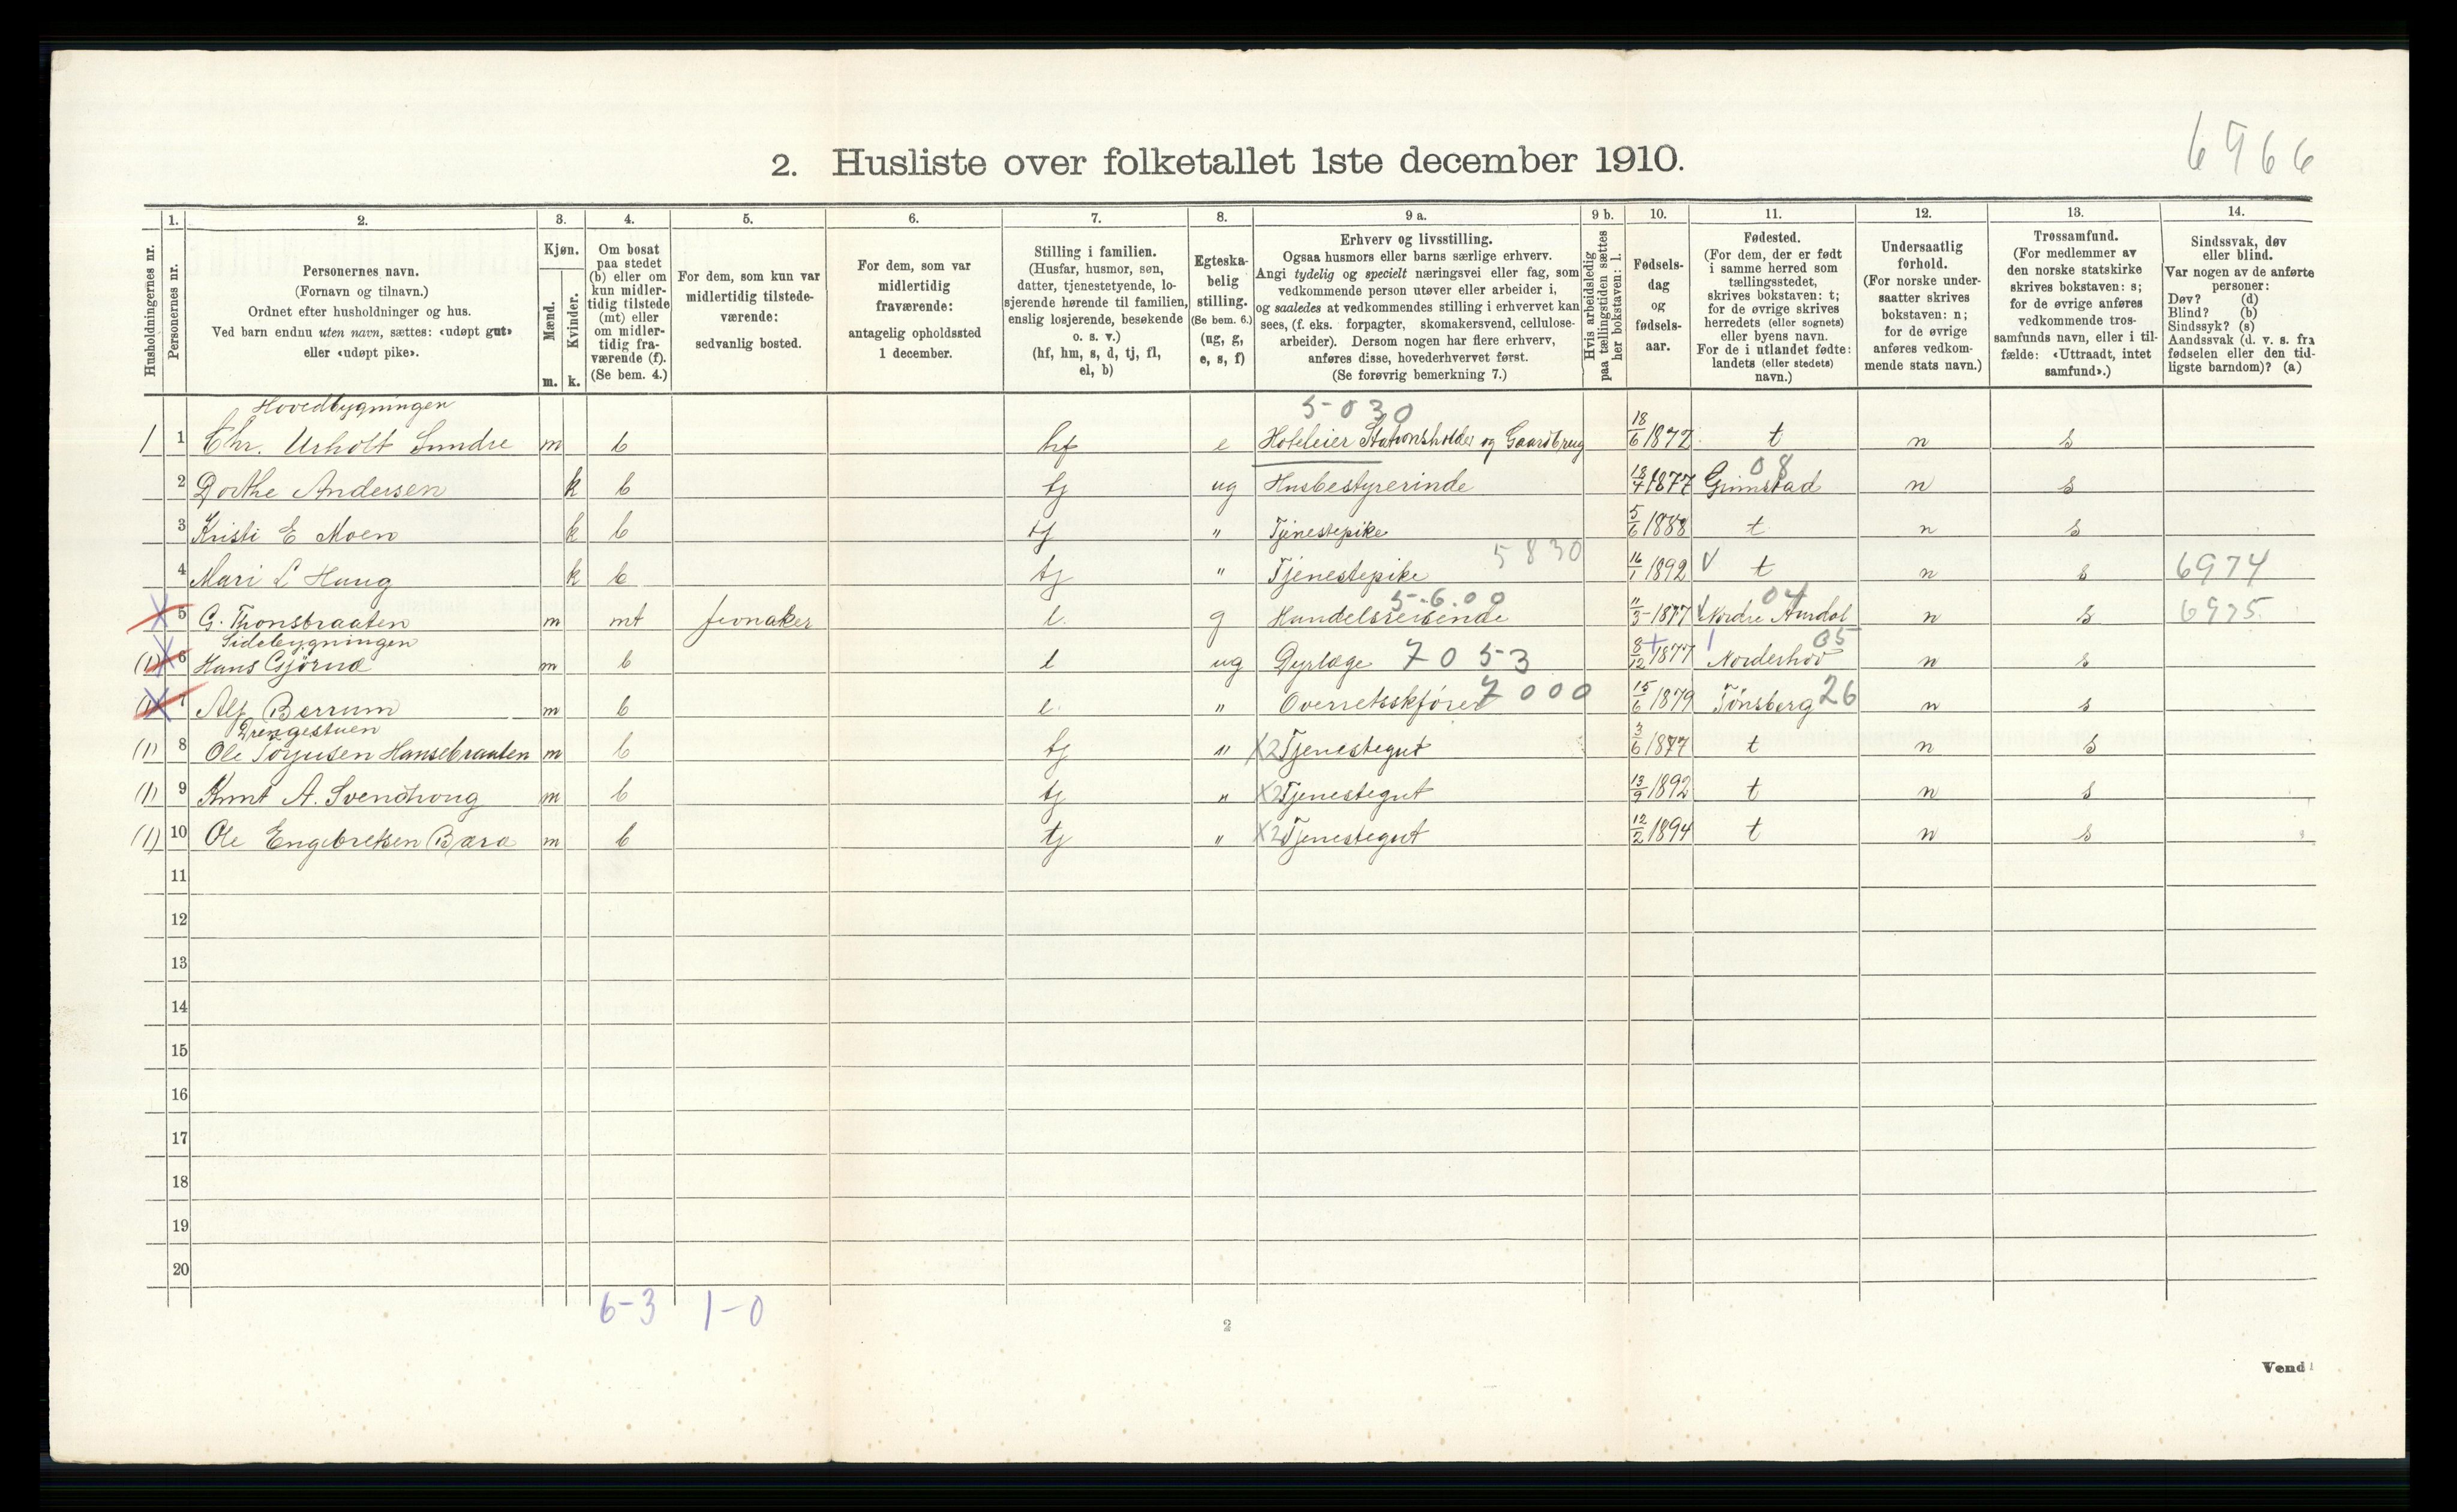 6966
2. Husliste over folketallet 1ste december 1910.
Husholdningernes nr.
1.
Personernes nr.
2.
Personernes navn.
(Fornavn og tilnavn.)
Ordnet efter husholdninger og hus.
Ved barn endnu uten navn, sættes: «udøpt gut»
eller «udøpt pike».
3.
Kjøn.
Mænd.
Kvinder.
m. k.
4.
Om bosat
paa stedet
(b) eller om
kun midler-
tidig tilstede
(mt) eller
om midler-
tidig fra-
værende (f).
(Se bem. 4.)
5.
For dem, som kun var
midlertidig tilstede-
værende:
sedvanlig bosted.
6.
For dem, som var
midlertidig
fraværende:
antagelig opholdssted
1 december.
7.
Stilling i familien.
(Husfar, husmor, søn,
datter, tjenestetyende, lo-
sjerende hørende til familien,
enslig losjerende, besøkende
o. s. v.)
(hf, hm, s, d, tj, fl,
el, b)
8.
Egteska-
belig
stilling.
(Se bem. 6.)
(ug, g,
e, s, f)
9 a.
Erhverv og livsstilling.
Ogsaa husmors eller barns særlige erhverv.
Angi tydelig og specielt næringsvei eller fag, som
vedkommende person utøver eller arbeider i,
og saaledes at vedkommendes stilling i erhvervet kan
sees, (f. eks. forpagter, skomakersvend, cellulose-
arbeider). Dersom nogen har flere erhverv,
anføres disse, hovederhvervet først.
(Se forøvrig bemerkning 7.)
9 b.
Hvis arbeidsledig
paa tællingstiden sættes
her bokstaven: l.
10.
Fødsels-
dag
og
fødsels-
aar.
11.
Fødested.
(For dem, der er født
i samme herred som
tællingsstedet,
skrives bokstaven: t;
for de øvrige skrives
herredets (eller sognets)
eller byens navn.
For de i utlandet fødte:
landets (eller stedets)
navn.)
12.
Undersaatlig
forhold.
(For norske under-
saatter skrives
bokstaven: n;
for de øvrige
anføres vedkom-
mende stats navn.)
13.
Trossamfund.
(For medlemmer av
den norske statskirke
skrives bokstaven: s;
for de øvrige anføres
vedkommende tros-
samfunds navn, eller i til-
fælde: «Uttraadt, intet
samfund».)
14.
Sindssvak, døv
eller blind.
Var nogen av de anførte
personer:
Døv? (d)
Blind? (b)
Sindssyk? (s)
Aandssvak (d. v. s. fra
fødselen eller den tid-
ligste barndom)? (a)
Hovedbygningen 5-030
1 1 Chr. Urholt Sundre m b hf e Hoteleier Stationsholder og Gaardbrug 18/6 1872 t n s
2 Dorthe Andersen k b tj ug Husbestyrerinde 18/4 1877 Grimstad 08 n s
3 Kristi E Moen k b tj " Tjenestepike 5/6 1888 t n s
4 Mari L Haug k b tj " Tjenestepike 5830 16/1 1892 V t n s 6974
X 5 G. Thonsbraaten m mt Jevnaker l. g Handelsreisende 5-6.00 11/3-1877 Nordre Aurdal 04 n s 6975
Sidebygningen
(1) 6 Hans Gjörud m b l ug Dyrlæge 7053 8/12 1877 Norderhov 05 n s
(1) 7 Alf Berrum m b l. " Overretsskfører 7000 15/6 1879 Tönsberg 26 n s
Drengestuen
(1) 8 Ole Torjusen Hansebraaten m b tj " X2 Tjenestegut 3/6 1877 t n s
(1) 9 Knut A. Svendhoug m b tj " X2 Tjenestegut 13/9 1892 t n s
(1) 10 Ole Engebretsen Bæra m b tj " X2 Tjenestegut 12/2 1894 t n s
11
12
13
14
15
16
17
18
19
20
6-3 1-0
2
Vend!